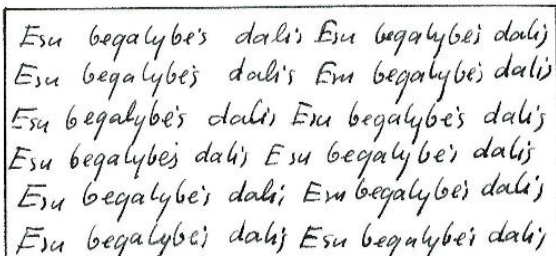 Esu begalybės dalis Esu begalybės dalis
Esu begalybės dalis Esu begalybės dalis
Esu begalybės dalis Esu begalybės dalis
Esu begalybės dalis Esu begalybės dalis
Esu begalybės dalis Esu begalybės dalis
Esu begalybės dalis Esu begalybės dalis